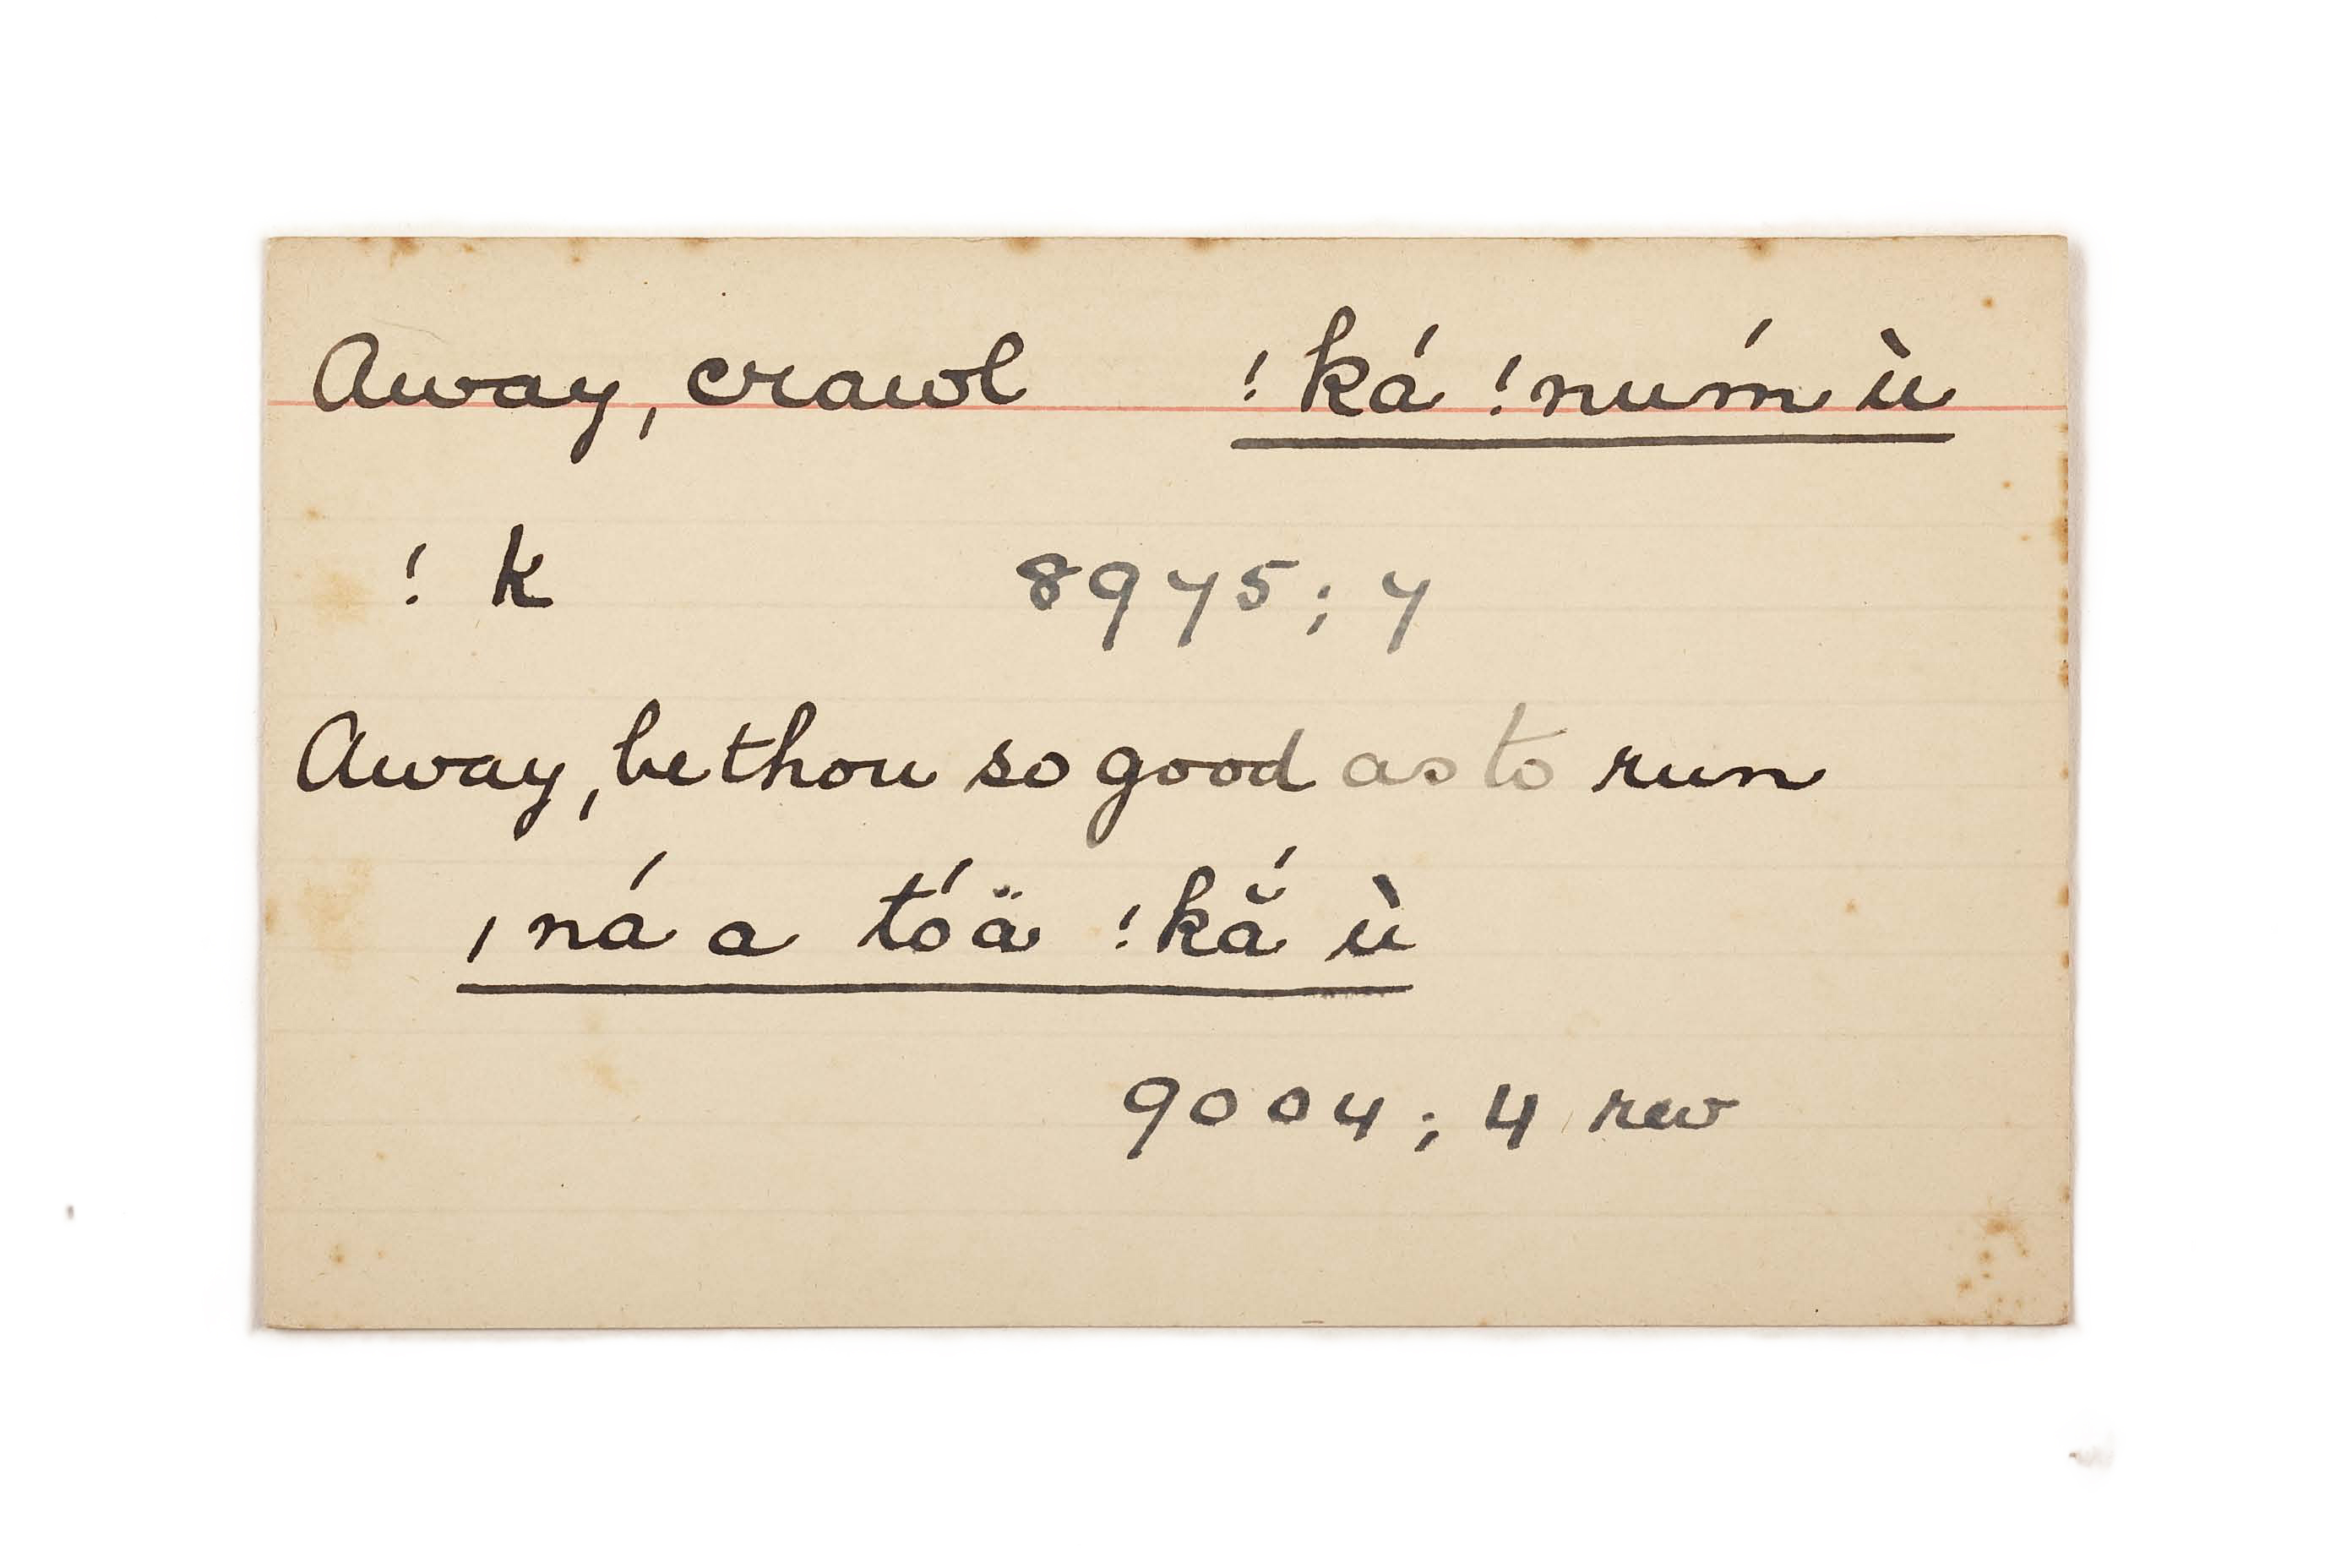 Away, crawl !ká !nuḿ ù
! k 8975; 7
Away, be thou so good as to run
ˌná a tóä !kắ ù
9004; 4 rev